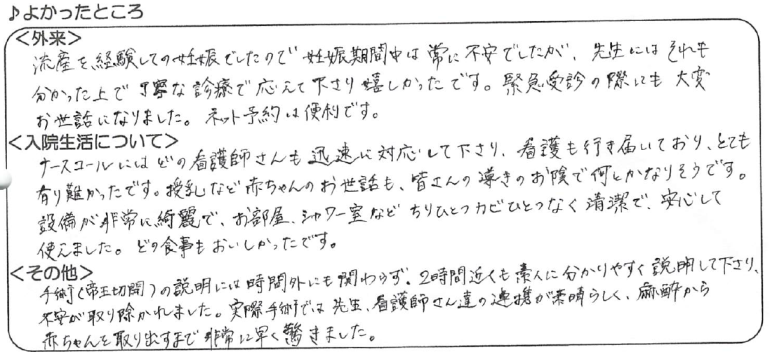 ♪よかったところ
<外来>
流産を経験しての妊娠でしたので 妊娠期間中は常に不安でしたが、先生にはそれも
分かった上で丁寧な診療で応えて下さり嬉しかったです。緊急受診の際にも大変
お世話になりました。ネット予約は便利です。
<入院生活について>
ナースコールにはどの看護師さんも迅速に対応して下さり、看護も行き届いており、とても
有り難かったです。授乳など赤ちゃんのお世話も、皆さんの導きのお陰で何とかなりそうです。
設備が非常に綺麗で、お部屋、シャワー室など ちりひとつカビひとつなく清潔で、安心して
使えました。どの食事もおいしかったです。
<その他>
手術(帝王切開)の説明には時間外にも関わらず、2時間近くも素人に分かりやすく説明して下さり、
不安が取り除かれました。実際手術では先生、看護師さん達の連携が素晴らしく、麻酔から
赤ちゃんを取り出すまで非常に早く驚きました。